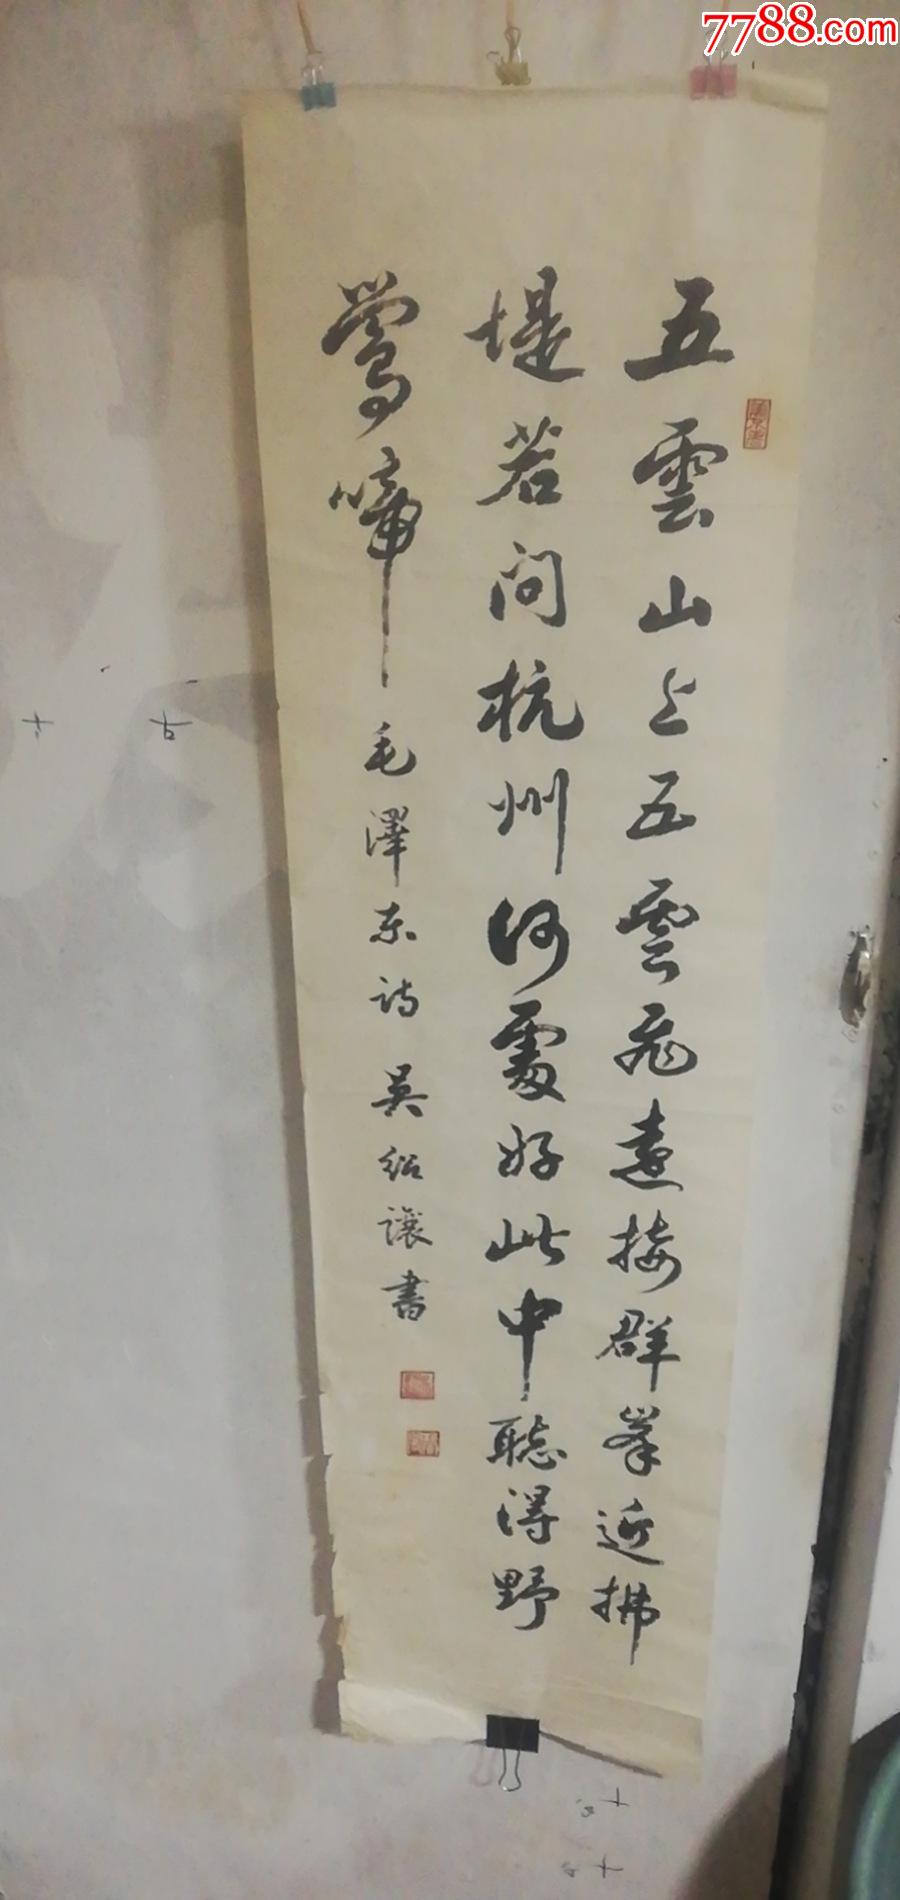 7788.com
五雲山上五雲飛遠接群峯近拂
堤若问杭州何處好此中聽得野
鶯啼
毛澤东诗 吴紹讓書